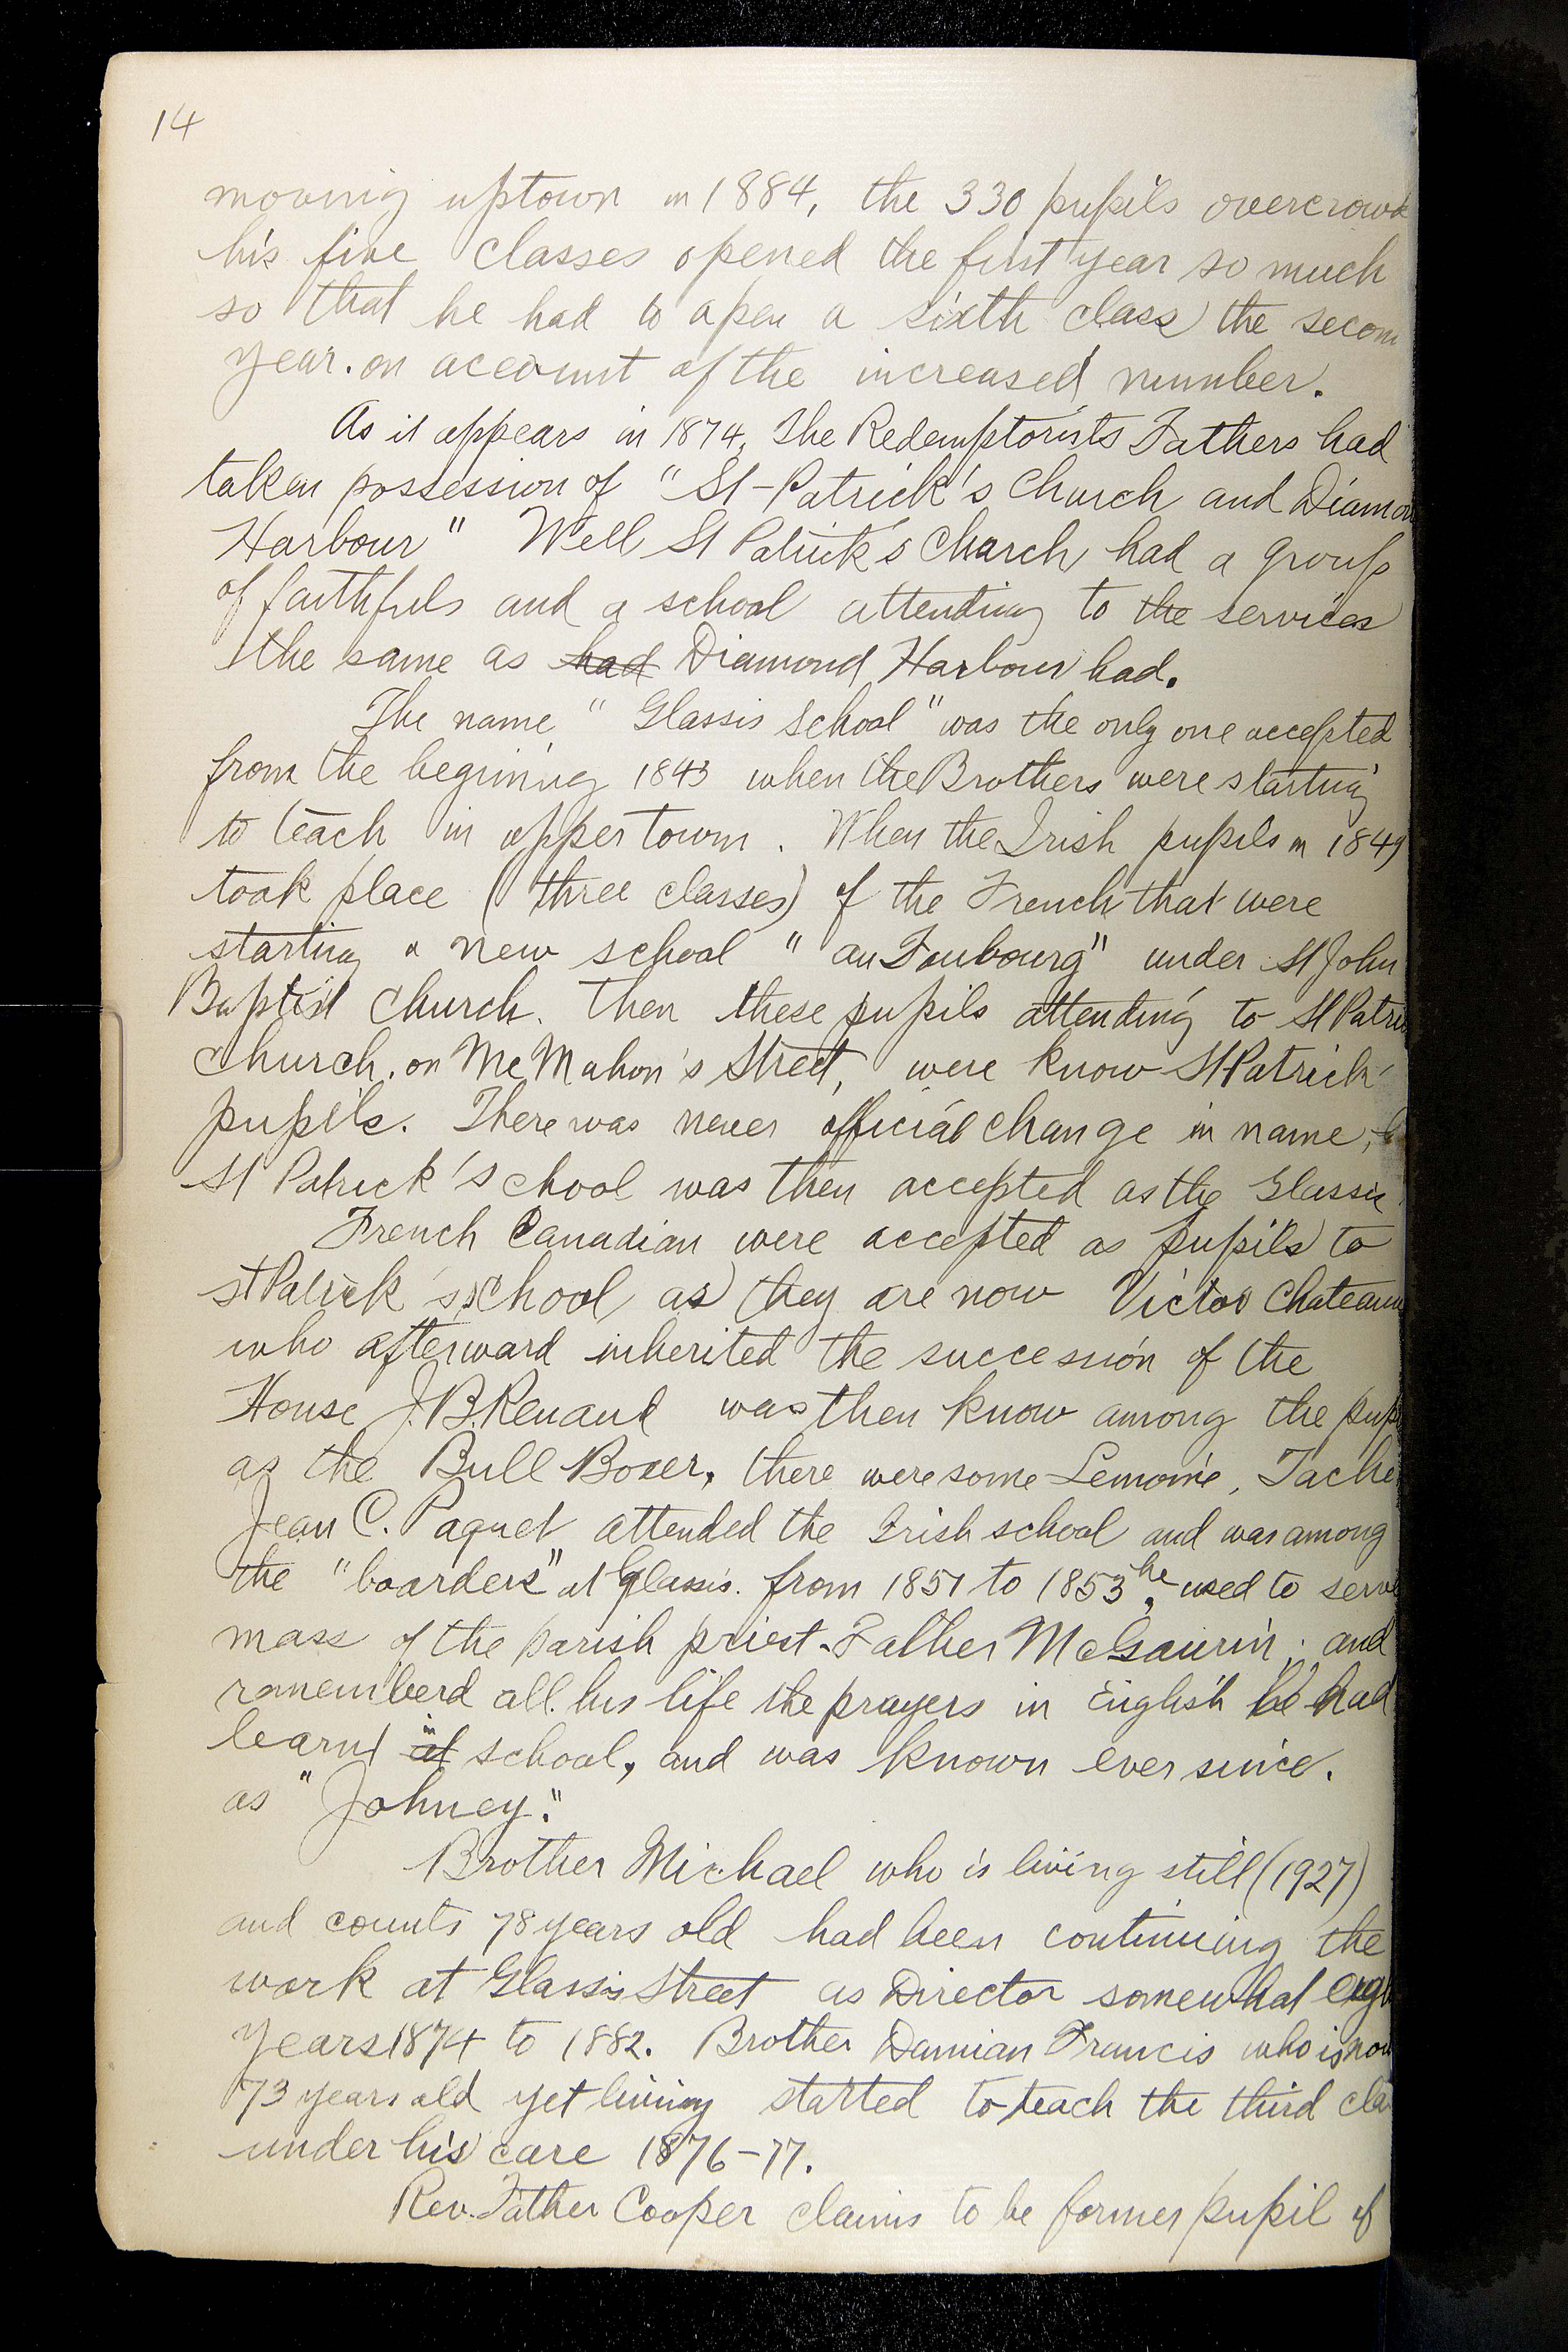 14
moving uptown in 1884, the 330 pupils overcrowd
his five classes opened the first year so much
so that he had to open a sixth class the secon
year. on account of the increased number.
As it appears in 1874, the Redemptorists Fathers had
taken possession of "St-Patrick's Church and Diamon
Harbour" Well St Patrick's Church had a group
of faithfuls and a school attending to the services
the same as had Diamond Harbour had.
The name "Glassis School" was the only one accepted
from the begining 1843 when the Brothers were starting
to teach in upper town. When the Irish pupils in 1849
took place (three classes) of the French that were
starting a new school "au Faubourg" under St John
Baptist Church. Then these pupils attending to St Patri
Church. on McMahon's Street, were know St Patrick'
pupils. There was never official change in name,
St Patrick's chool was then accepted as the Glassis
French Canadian were accepted as pupils to
St Patrick's school as they are now Victor Chateau
who afterward inherited the succession of the
House J.B. Renaud was then know among the pup
as the Bull Boxer, there were some Lemoine, Tache
Jean C. Paquet attended the Irish school and was among
the "boarders" at Glassis. from 1851 to 1853, he used to serve
mass of the parish priest. Father McGaurin; and
rememberd all his life the prayers in English he had
learnt at in school, and was known ever since.
as "Johney."
Brother Michael who is living still (1927)
and counts 78 years old had been continuing the
work at Glassis Street as Director somewhat eigh
years 1874 to 1882. Brother Damian Francis who is now
73 years old yet living started to teach the third cla
under his care 1876-77.
Rev. Father Cooper claims to be former pupil of